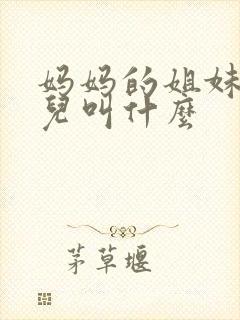 妈妈的姐妹
兒叫什麼
茅草堰